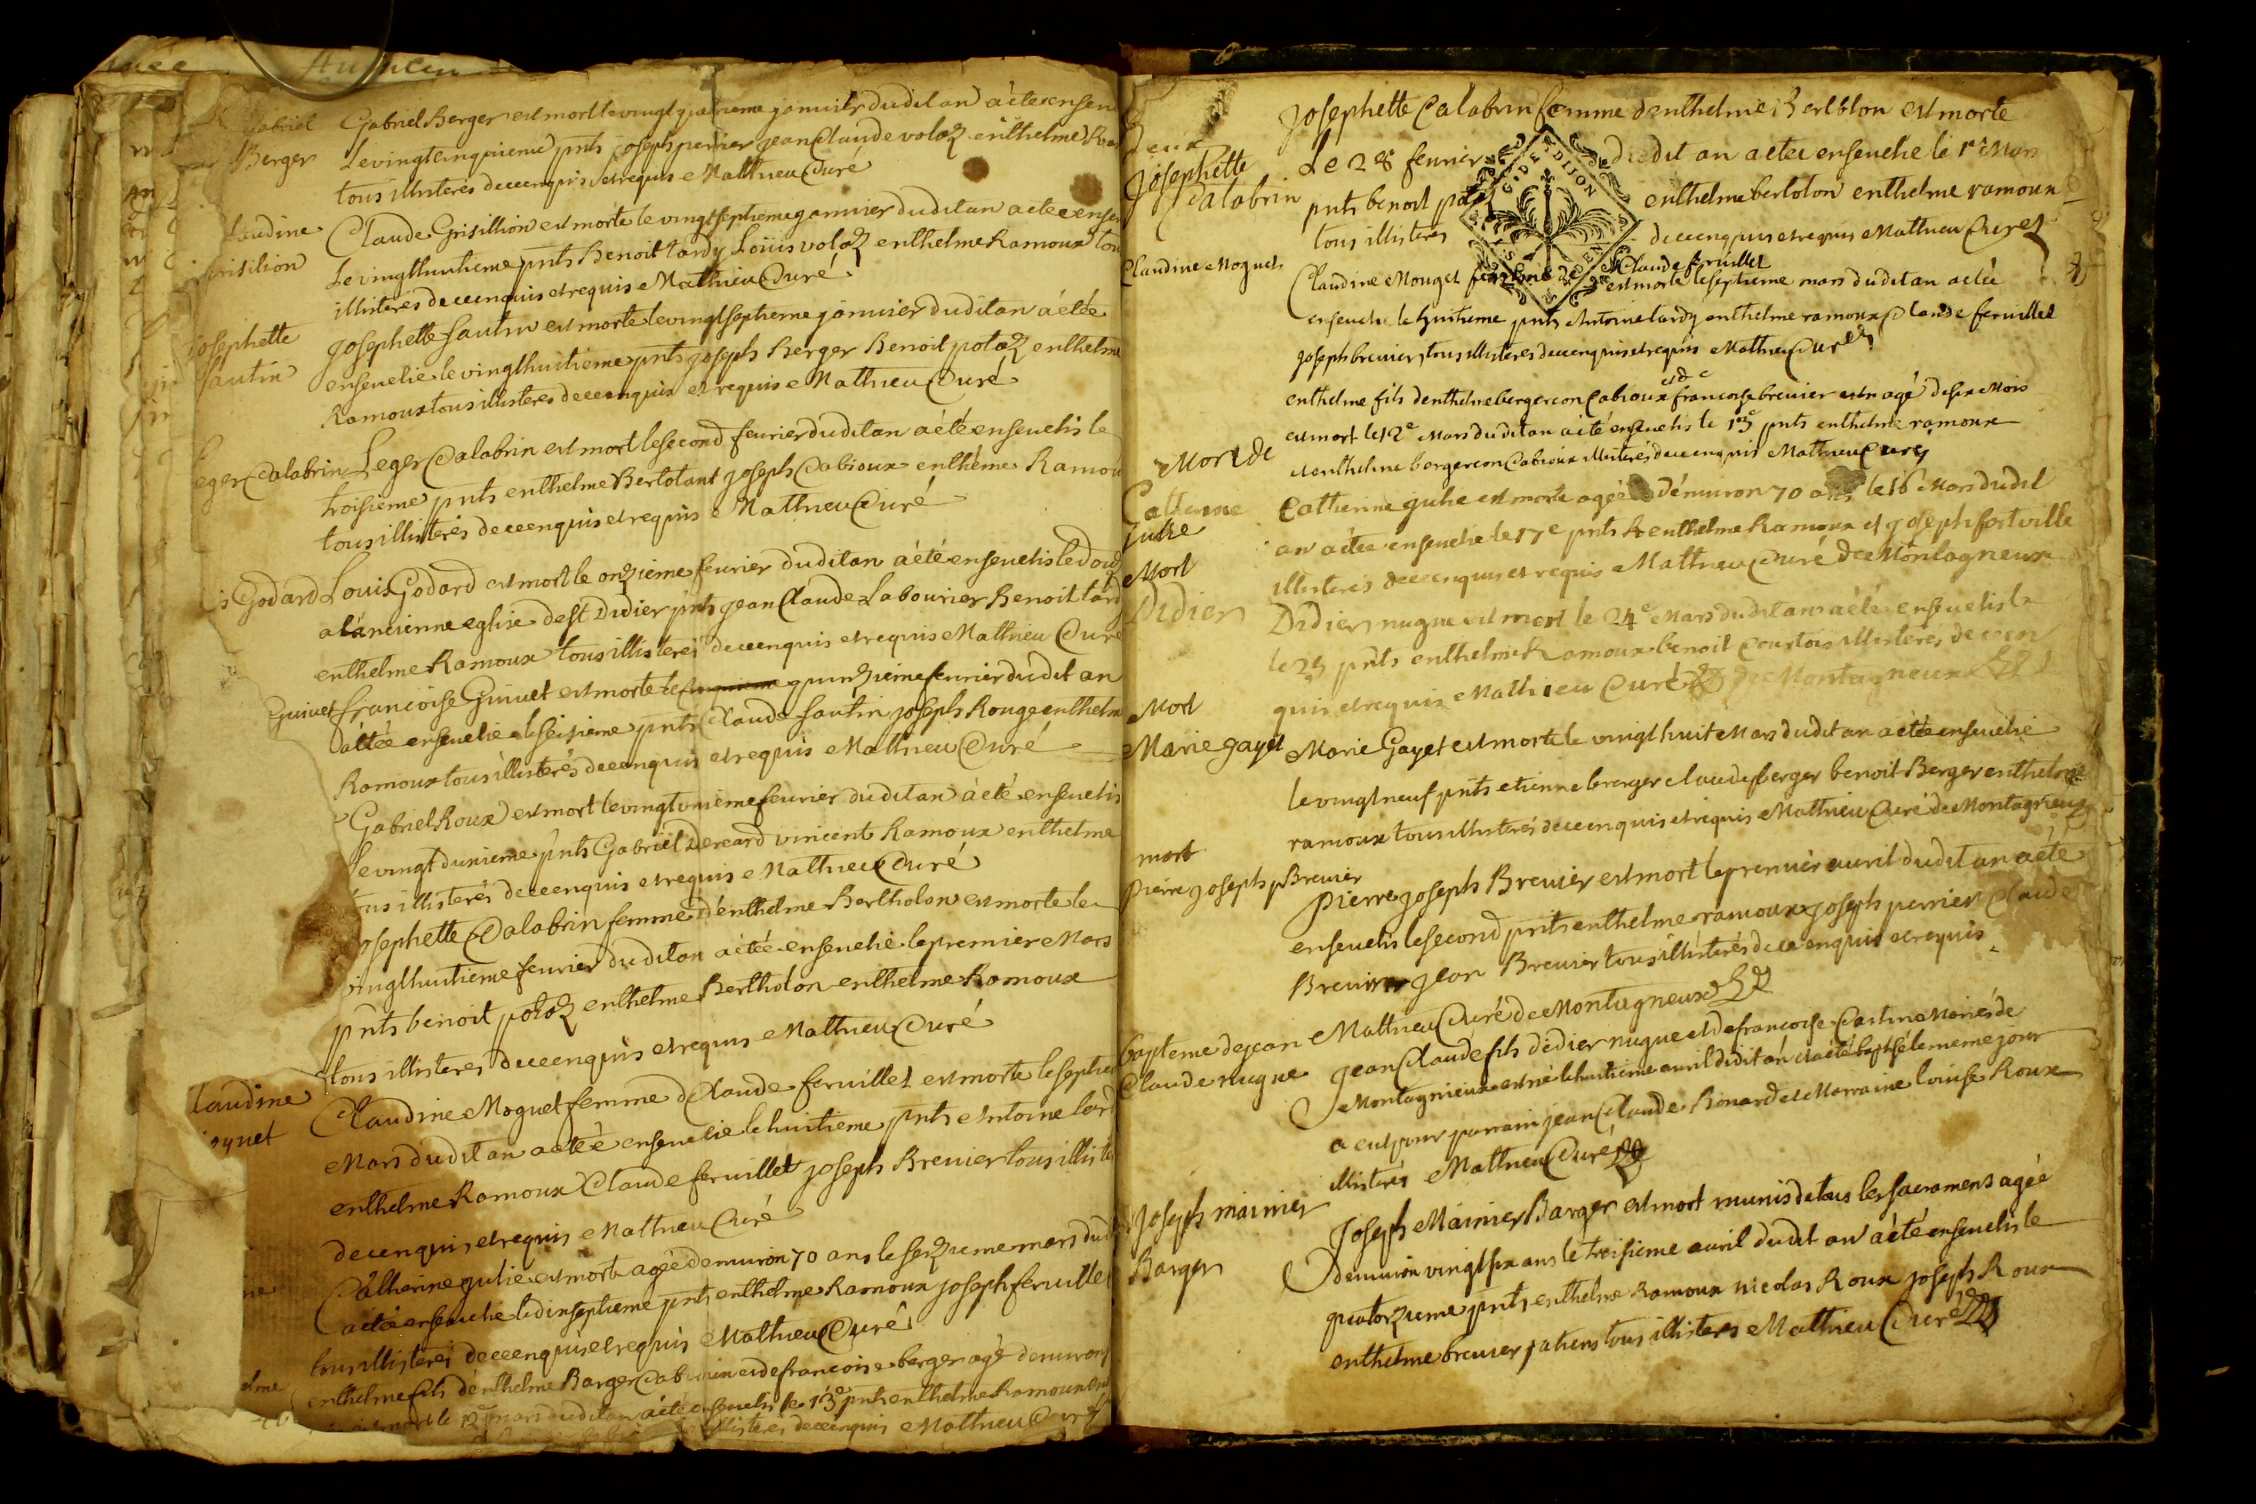 Gabriel
Berger
Gabriel Berger est mort le vingt quatrieme janvier dudit an a été enseu
Le vingtcinquieme pnts joseph perrier jean Claude volaz enthelme
tous illiterés de ce enquis et requis Mathieu Curé
laudine
Grisilion
Claude Grisillion est morte le vingtseptieme janvier dudit an a etée ensev
Le vingthuitieme pnts Benoit tardy Loüis volaz enthelme Ramoux tou
illiterés de ce enquis et requis Mathieu Curé
josephette
Sautin
Josephette Sautin est morte le vingtseptieme janvier dudit an a étée
ensevelie le vingthuitieme pnts joseph Berger Benoit potaz enthelme
Ramoux tous illiteres de ce enquis et requis Mathieu Curé
eger Calabrin
Leger Calabrin est mort le second fevrier dudit an a été ensevelis le
troisieme pnts enthelme Bertolant joseph Cabioux enthême Ramou
tous illiterés de ce enquis et requis Mathieu Curé
is Godard
Louis Godard est mort le onzieme fevrier dudit an a été ensevelis le douz
a lancienne eglise de st Didier pnts jean Claude Labourier Benoit tard
enthelme Ramoux tous illiterés de ce enquis et requis Mathieu Curé
Guivet
francoise Guivet est morte le quinzieme fevrier dudit an
a étée ensevelie le seisieme pnts Claude Sautin joseph Rouge enthelm
Ramoux tous illiterés de ce enquis et requis Mathieu Curé
Gabriel Roux est mort le vingtunieme fevrier dudit an a été ensevelis
le vingtdeuxieme pnts Gabriel vincent Ramoux enthelme
tous illiterés de ce enquis et requis Mathieu Curé
josephette Calabrin femme d'enthelme Bertholon est morte le
vingthuitieme fevrier dudit an a étée ensevelie le premier Mars
pnts benoit potaz enthelme Bertholon enthelme Ramoux
tous illiteres de ce enquis et requis Mathieu Curé
laudine
ognet
Claudine Moguet femme d Claude feruillet est morte le septie
Mars dudit an a étée ensevelie le huitieme pnts Antoine tard
enthelme Ramoux Claude feruillet joseph Brevier tous illite
de ce enquis et requis Mathieu Curé
Catherine julie est morte agée denviron 70 ans le seizieme mars dud
a étée ensevelie le dixseptieme pnts enthelme Ramoux joseph feruillet
tous illiterés de ce enquis et requis Mathieu Curé
elme
enthelme fils d'enthelme Barger et de francoise berger agé denviron
mort le 12e mars dudit an a été ensevelis le 13e pnts enthelme Ramoux
illiterés de ce enquis Mathieu Curé
Josephette
Calabrin
Josephette Calabrin femme d'enthelme Bertolon est morte
Le 28 fevrier dudit an a étée ensevelie le 1er Mars
pnts benoit potaz enthelme bertolon enthelme ramoux
tous illiteres de ce enquis et requis Mathieu Curé
G. DE DIJON
Claudine Moguet
Claudine Mouget femme de Claude feruillet
est morte le septieme mars dudit an a étée
ensevelie le huitieme pnts Antoine tardy enthelme ramoux Claude feruillet
joseph brevier tous illiteres de ce enquis et requis Mathieu Curé
et de
enthelme fils d'enthelme bergeron Cabioux francoise brevier agé de six Mois
est mort le 12e Mars dudit an a été ensevelis le 13e pnts enthelme ramoux
et enthelme bergeron Cabioux illiterés de ce enquis Mathieu Curé
Mort de
Catherine
Julie
Catherine julie est morte agée d'environ 70 ans le 16 Mars dudit
an a étée ensevelie le 17e pnts enthelme Ramoux et joseph fortville
illiterés de ce enquis et requis Mathieu Curé de Montagneux
Mort
Didier
Didier nugue est mort le 24e Mars dudit an a été ensevelis le
le 25 pnts enthelme Ramoux benoit Courtois illiterés de ce en
quis et requis Mathieu Curé de Montagneux
Mort
Marie gayet
Marie Gayet est morte le vingt huit Mars dudit an a étée ensevelie
le vingtneuf pnts etienne berger claude berger benoit Berger enthelme
ramoux tous illiterés de ce enquis et requis Mathieu Curé de Montagneux
mort
pierre joseph Brevier
pierre joseph Brevier est mort le premier avril dudit an a été
ensevelis le second pnts enthelme ramoux joseph perrier Claude
Brevier jean Brevier tous illiterés de ce enquis et requis
Mathieu Curé de Montagneux
bapteme de jean
Claude nugue
jean Claude fils didier nugue et de francoise Cartin Mariés de
Montagnieux est né le huitieme avril dudit an et a été baptisé le meme jour
a eut pour parrain jean Claude Renard et Marraine louise Roux
illiterés Mathieu Curé
Joseph mainier
Barger
Joseph Mainier Barger est mort munis de tous les sacramens agée
denviron vingt six ans le troisieme avril dudit an a été ensevelis le
quatorzieme pnts enthelme Ramoux nicolas Roux joseph Roux
enthelme brevier tous illiteres Mathieu Curé